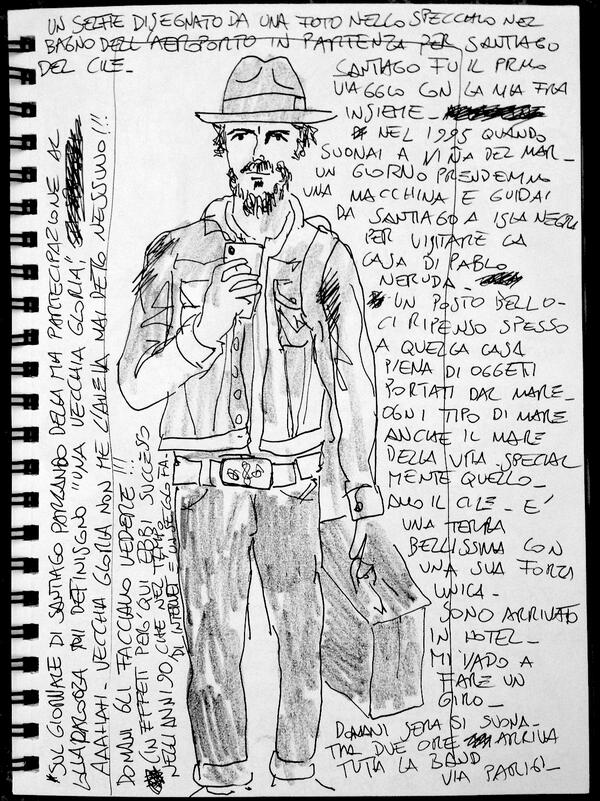 UN SELFIE DISEGNATO DA UNA FOTO NELLO SPECCHIO NEL
BAGNO DELL'AEROPORTO IN PARTENZA PER SANTIAGO
DEL CILE_
SANTIAGO FU IL PRIMO
VIAGGIO CON LA MIA
INSIEME_
NEL 1995 QUANDO
SUONAI A VIÑA DEL MAR_
UN GIORNO PRENDEMMO
UNA MACCHINA E GUIDAI
DA SANTIAGO A ISLA NEGRA
PER VISITARE LA
CASA DI PABLO
NERUDA_
UN POSTO BELLO_
CI RIPENSO SPESSO
A QUELLA CASA
PIENA DI OGGETTI
PORTATI DAL MARE_
OGNI TIPO DI MARE
ANCHE IL MARE
DELLA VITA SPECIAL
MENTE QUELLO_
AMO IL CILE_ E'
UNA TERRA
BELLISSIMA CON
UNA SUA FORZA
UNICA_
SONO ARRIVATO
IN HOTEL_
MI VADO A
FARE UN
GIRO_
DOMANI SERA SI SUONA_
TRA DUE ORE ARRIVA
TUTTA LA BAND
VIA PARIGI_
SUL GIORNALE DI SANTIAGO PARLANDO DELLA MIA PARTECIPAZIONE AL
LOLLAPALOOZA MI DEFINISCONO "UNA VECCHIA GLORIA",
AAAHAH_ VECCHIA GLORIA NON ME L'AVEVA MAI DETTO NESSUNO!!!
DOMANI GLI FACCIAMO VEDERE!!!
(IN EFFETTI PERÒ QUI EBBI SUCCESSO
NEGLI ANNI 90 CHE NEL TEMPO
DI INTERNET = UN